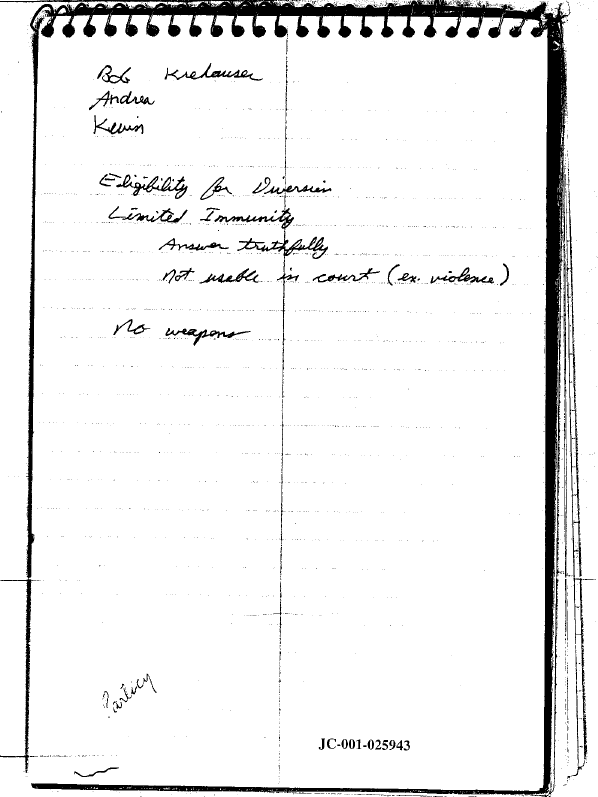 Bob Krehauser
Andrea
Kevin
Eligibility for Diversion
Limited Immunity
Answer truthfully
Not usable in court (ex. violence)
No weapons
JC-001-025943